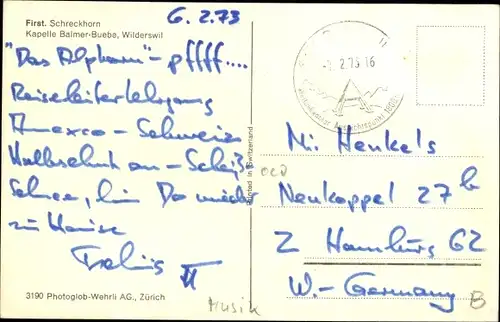 6.2.73
First. Schreckhorn
Kapelle Balmer-Buebe, Wilderswil
"Das Alphorn" - pffff....
Reiseleiterlehrgang
Amexco - Schweiz
Halbschuh an - Scheiß
Schnee, bin Do wieder
zu Hause
II
3190 Photoglob-Wehrli AG., Zürich
Printed in Switzerland
2.73 16
Henkels
Neukoppel 27b
2 Hamburg 62
W.-Germany
Musik
B